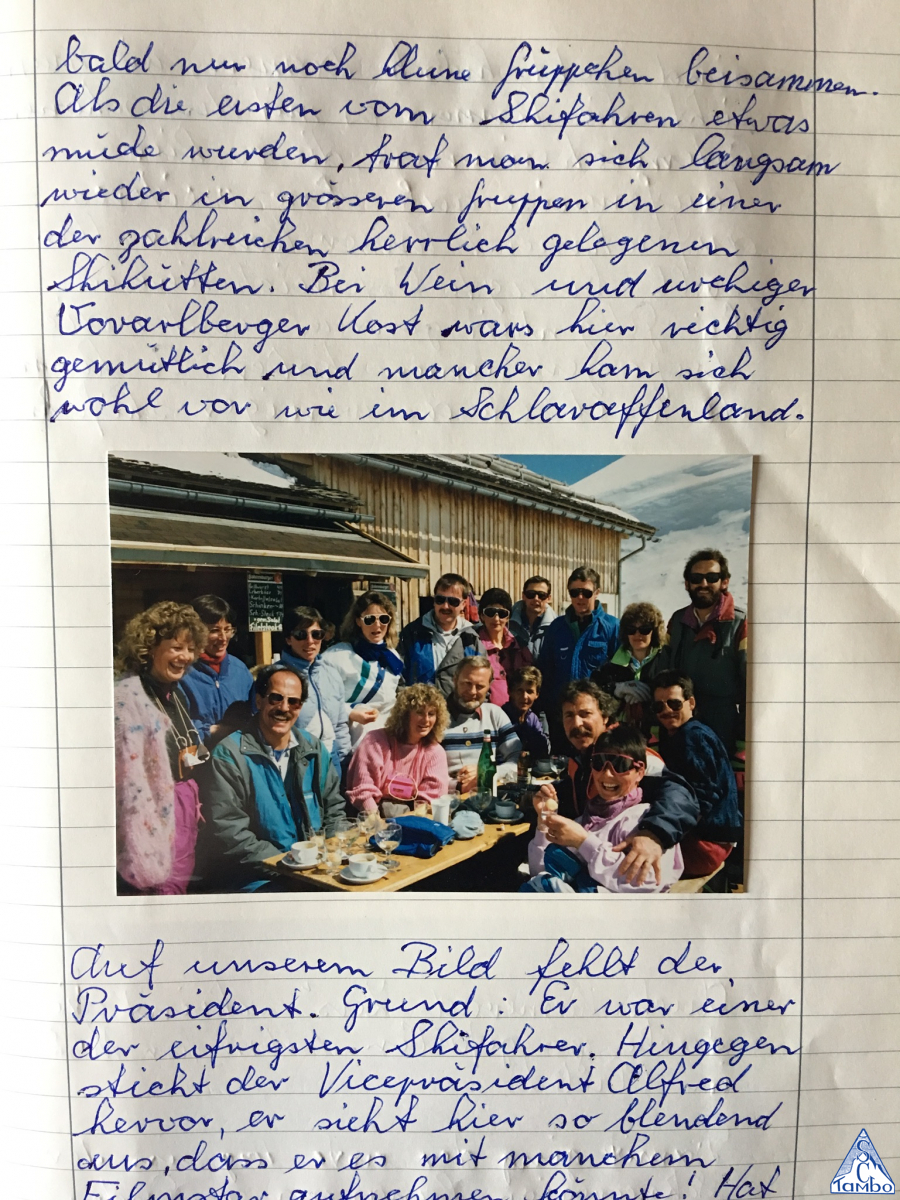 bald nur noch kleine Grüppchen beisammen.
Als die ersten vom Skifahren etwas
müde wurden, traf man sich langsam
wieder in grösseren Gruppen in einer
der zahlreichen herrlich gelegenen
Skihütten. Bei Wein und urchiger
Vorarlberger Kost wars hier richtig
gemütlich und mancher kam sich
wohl vor wie im Schlaraffenland.
Auf unserem Bild fehlt der
Präsident. Grund: Er war einer
der eifrigsten Skifahrer. Hingegen
sticht der Vicepräsident Alfred
hervor, er sieht hier so blendend
aus, dass er es mit manchem
Filmstar aufnehmen könnte! Hat
TAMBO